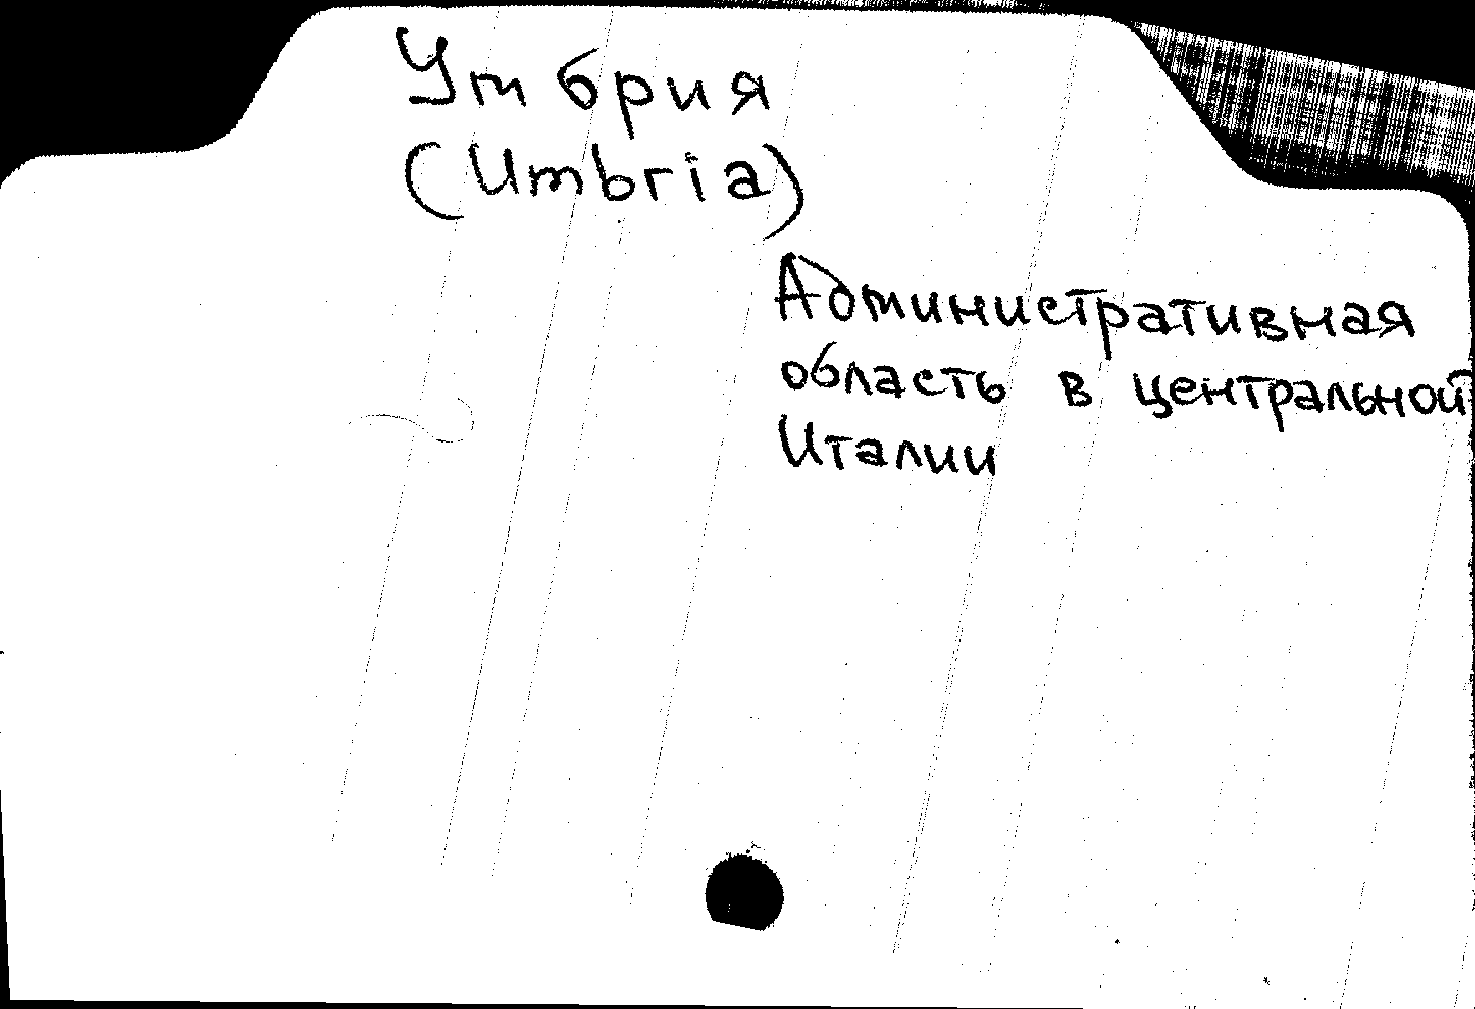 Умбрия
(Umbria)
Административная
область в центральной
Италии